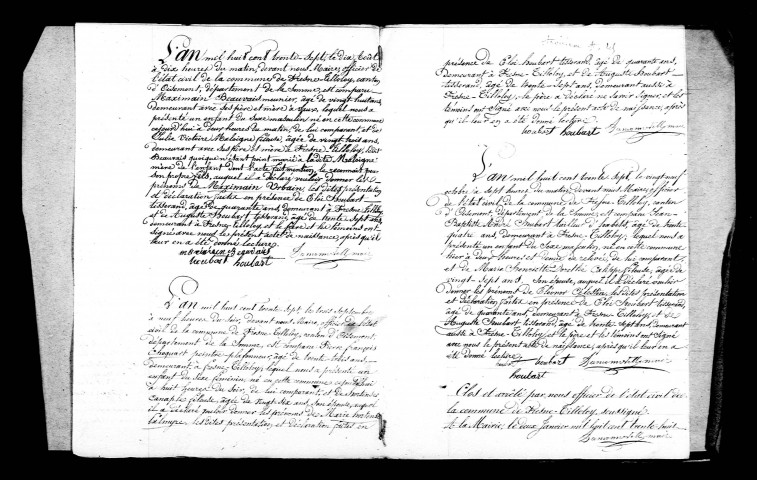 L'an mil huit cent trente sept, le dix Août
à dix heures du matin, devant nous Maire, officier de
l'état civil de la commune de Fresne-Tilloloy, canton
d'Oisemont, département de la Somme, est comparu
Maximain Beauvais meunier, âgé de vingt huit ans,
demeurant avec ses père et mère à lequel nous a
présenté un enfant du sexe masculin né en cette commune
cejourd'hui à deux heures du matin, de lui comparant et de
Julie Victoire fileuse, âgée de vingt huit ans,
demeurant avec ses père et mère à Fresne Tilloloy, ledit
Beauvais quoique n'étant point marié à ladite
mère de l'enfant dont l'acte fait mention, le reconnait pour
son propre fils, auquel il a déclaré vouloir donner les
prénoms de Maximain Urbain, les dites présentation
et déclaration faites en présence de Eloi Houbart
tisserand, âgé de quarante ans, demeurant à Fresne-Tilloloy
et de Auguste Houbart tisserand, âgé de trente sept ans
demeurant à Fresne-Tilloloy et le père et les témoins ont
signé avec nous le présent acte de naissance, après qu'il
leur en a été donné lecture
maximain Beauvais
houbart houbart
L'an mil huit cent trente sept, le trois septembre
à neuf heures du soir, devant nous Maire, officier de l'état
civil de la commune de Fresne-Tilloloy, canton d'Oisemont,
département de la Somme, est comparu Pierre François
âgé de trente trois ans
demeurant à Fresne-Tilloloy, lequel nous a présenté un
enfant du sexe féminin, né en cette commune cejourd'hui
à huit heures du soir, de lui comparant et de
fileuse, âgée de vingt six ans, son épouse, auquel
il a déclaré vouloir donner les prénoms de Marie
les dites présentation et déclaration faites en
présence de Eloi houbart tisserand, âgé de quarante ans,
demeurant à Fresne-Tilloloy, et de Auguste Houbart
tisserand, âgé de trente-sept ans, demeurant aussi à
Fresne-Tilloloy, le père a déclaré ne savoir signer, et les
témoins ont signé avec nous le présent acte de naissance, après
qu'il leur en a été donné lecture
houbart houbart
L'an mil huit cent trente sept, le vingt neuf
octobre à sept heures du matin, devant nous Maire, officier
de l'état civil de la commune de Fresne-Tilloloy, canton
d'Oisemont, département de la Somme, est comparu Jean-
Baptiste André Houbart tailleur d'habits, âgé de trente
quatre ans, demeurant à Fresne-Tilloloy, lequel nous a
présenté un enfant du sexe masculin, né en cette commune
hier à deux heures et demie de relevée, de lui comparant
et de Marie Henriette fileuse, âgée de
vingt-sept ans, son épouse, auquel il a déclaré vouloir
donner les prénoms de Eléonor Célestin, les dites présentation
et déclaration faites en présence de Eloi Houbart tisserand,
âgé de quarante ans, demeurant à Fresne-Tilloloy et de
Auguste Houbart tisserand, âgé de trente sept ans, demeurant
aussi à Fresne-Tilloloy, et le père et les témoins ont signé
avec nous le présent acte de naissance, après qu'il leur en a
été donné lecture
houbart
houbart
Clos et arrêté par nous officier de l'état civil de
la commune de Fresne-Tilloloy, soussigné.
A la Mairie, le deux janvier mil huit cent trente huit